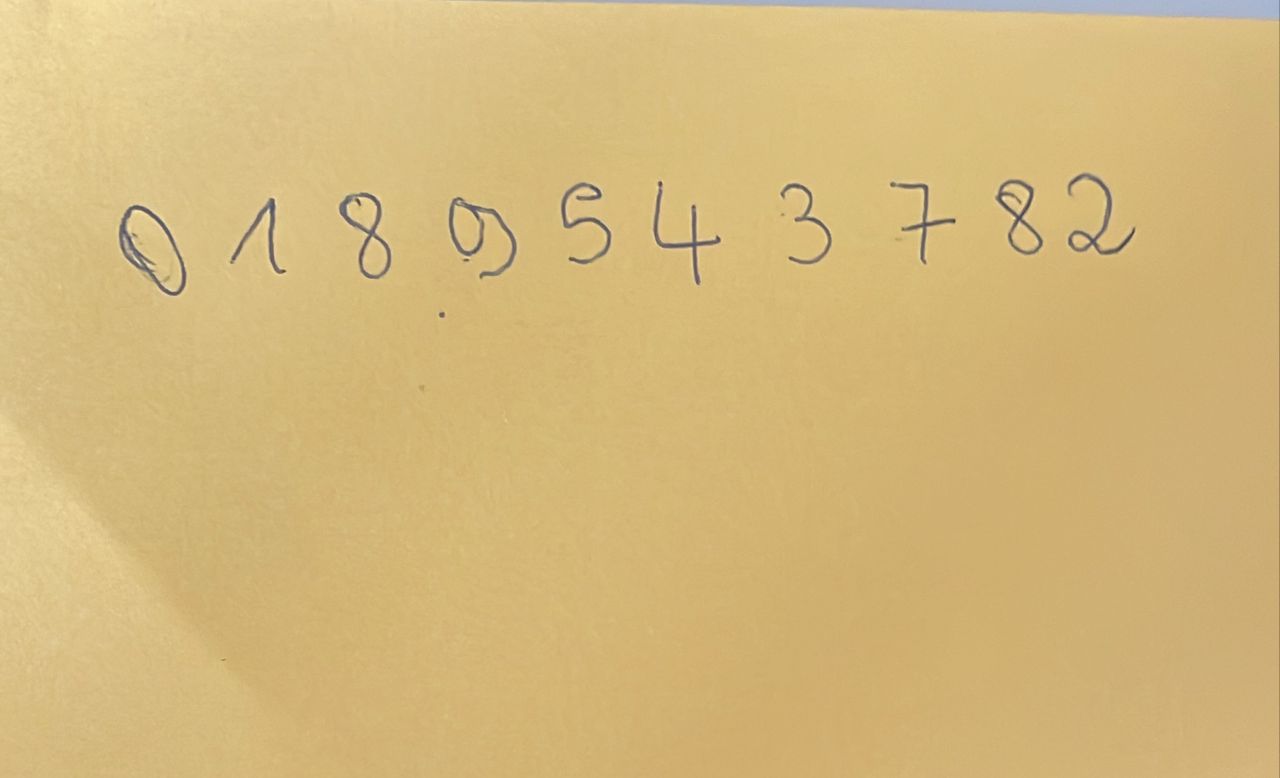 0 1 8 9 5 4 3 7 8 2